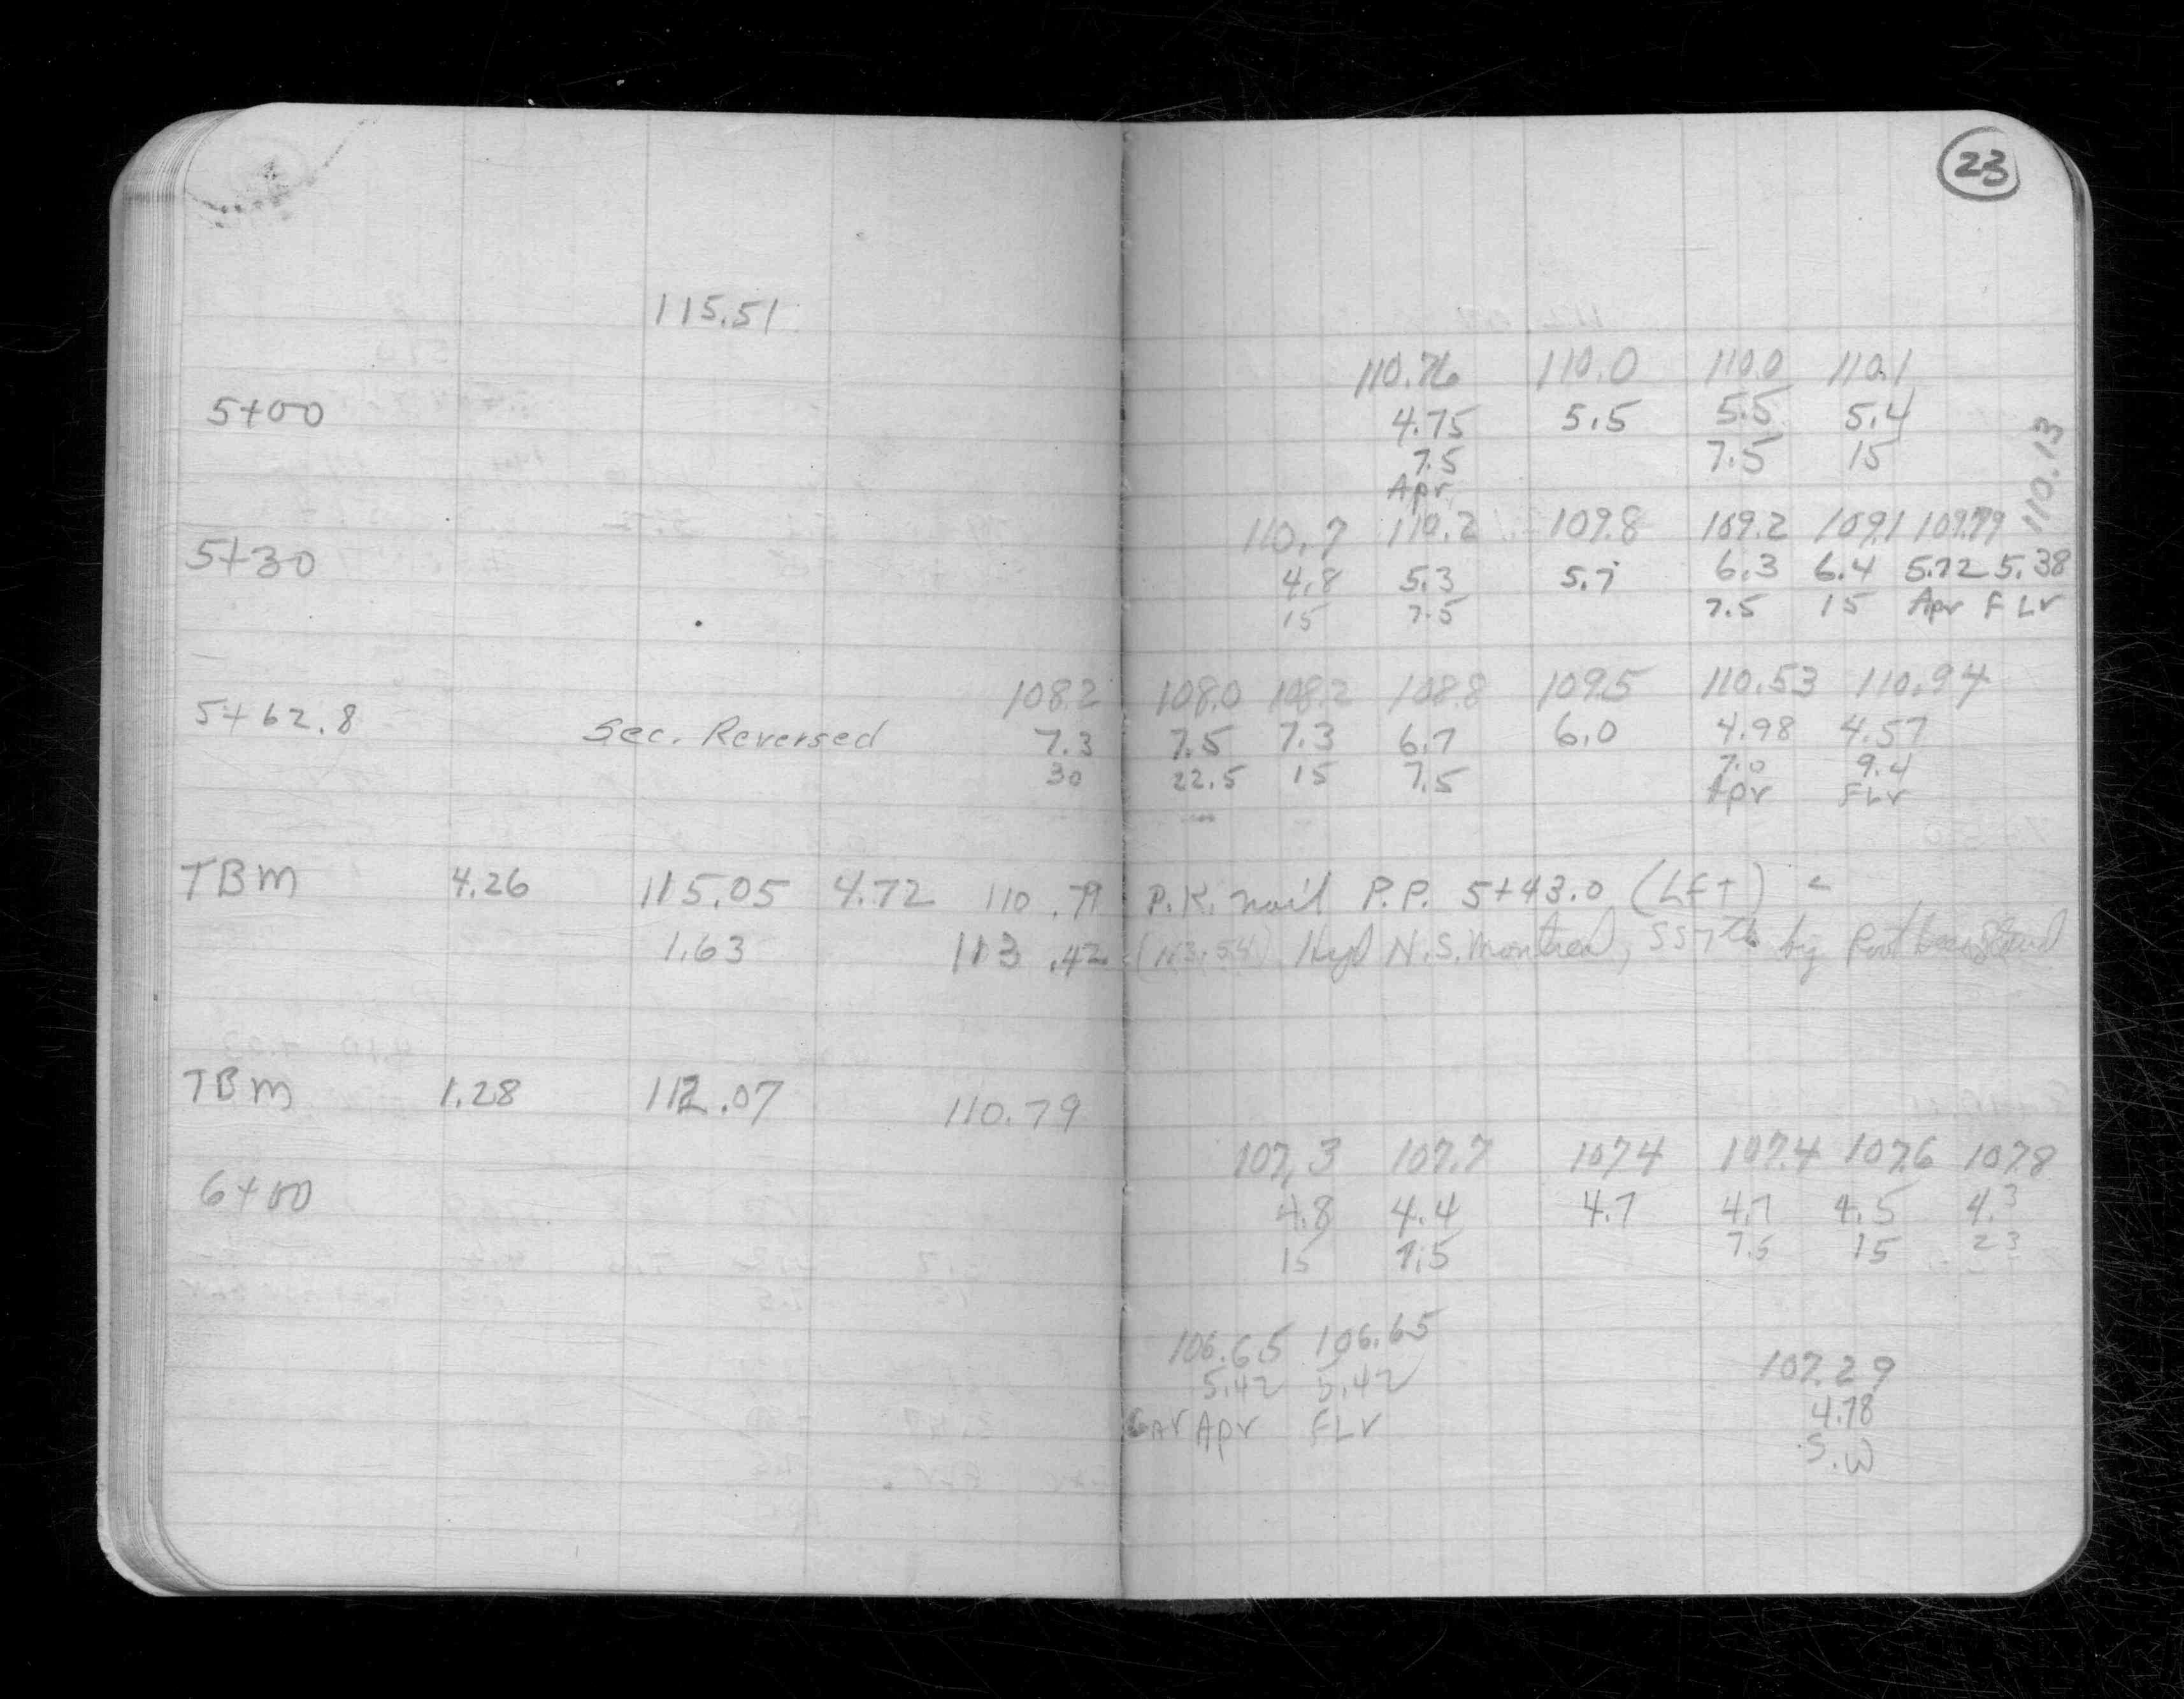 23
115.51
110.76 110.0 110.0 110.1
5+00 4.75 5.5 5.5 5.4
7.5 7.5 15
Apr
110.13
110.7 110.2 109.8 109.2 109.1 109.79
5+30 4.8 5.3 5.7 6.3 6.4 5.72 5.38
15 7.5 7.5 15 Apr FLr
108.2 108.0 108.2 108.8 109.5 110.53 110.94
5+62.8 Sec. Reversed 7.3 7.5 7.3 6.7 6.0 4.98 4.57
30 22.5 15 7.5 7.0 9.4
Apr FLr
TBM 4.26 115.05 4.72 110.79 P.K. nail P.P. 5+43.0 (LFT)
1.63 113.42 (113.54) Hyd N.S. Montreal,
TBM 1.28 112.07 110.79
107.3 107.7 107.4 107.4 107.6 107.8
6+00 4.8 4.4 4.7 4.7 4.5 4.3
15 7.5 7.5 15 23
106.65 106.65 107.29
5.42 5.42 4.78
GAr Apr FLr S.W